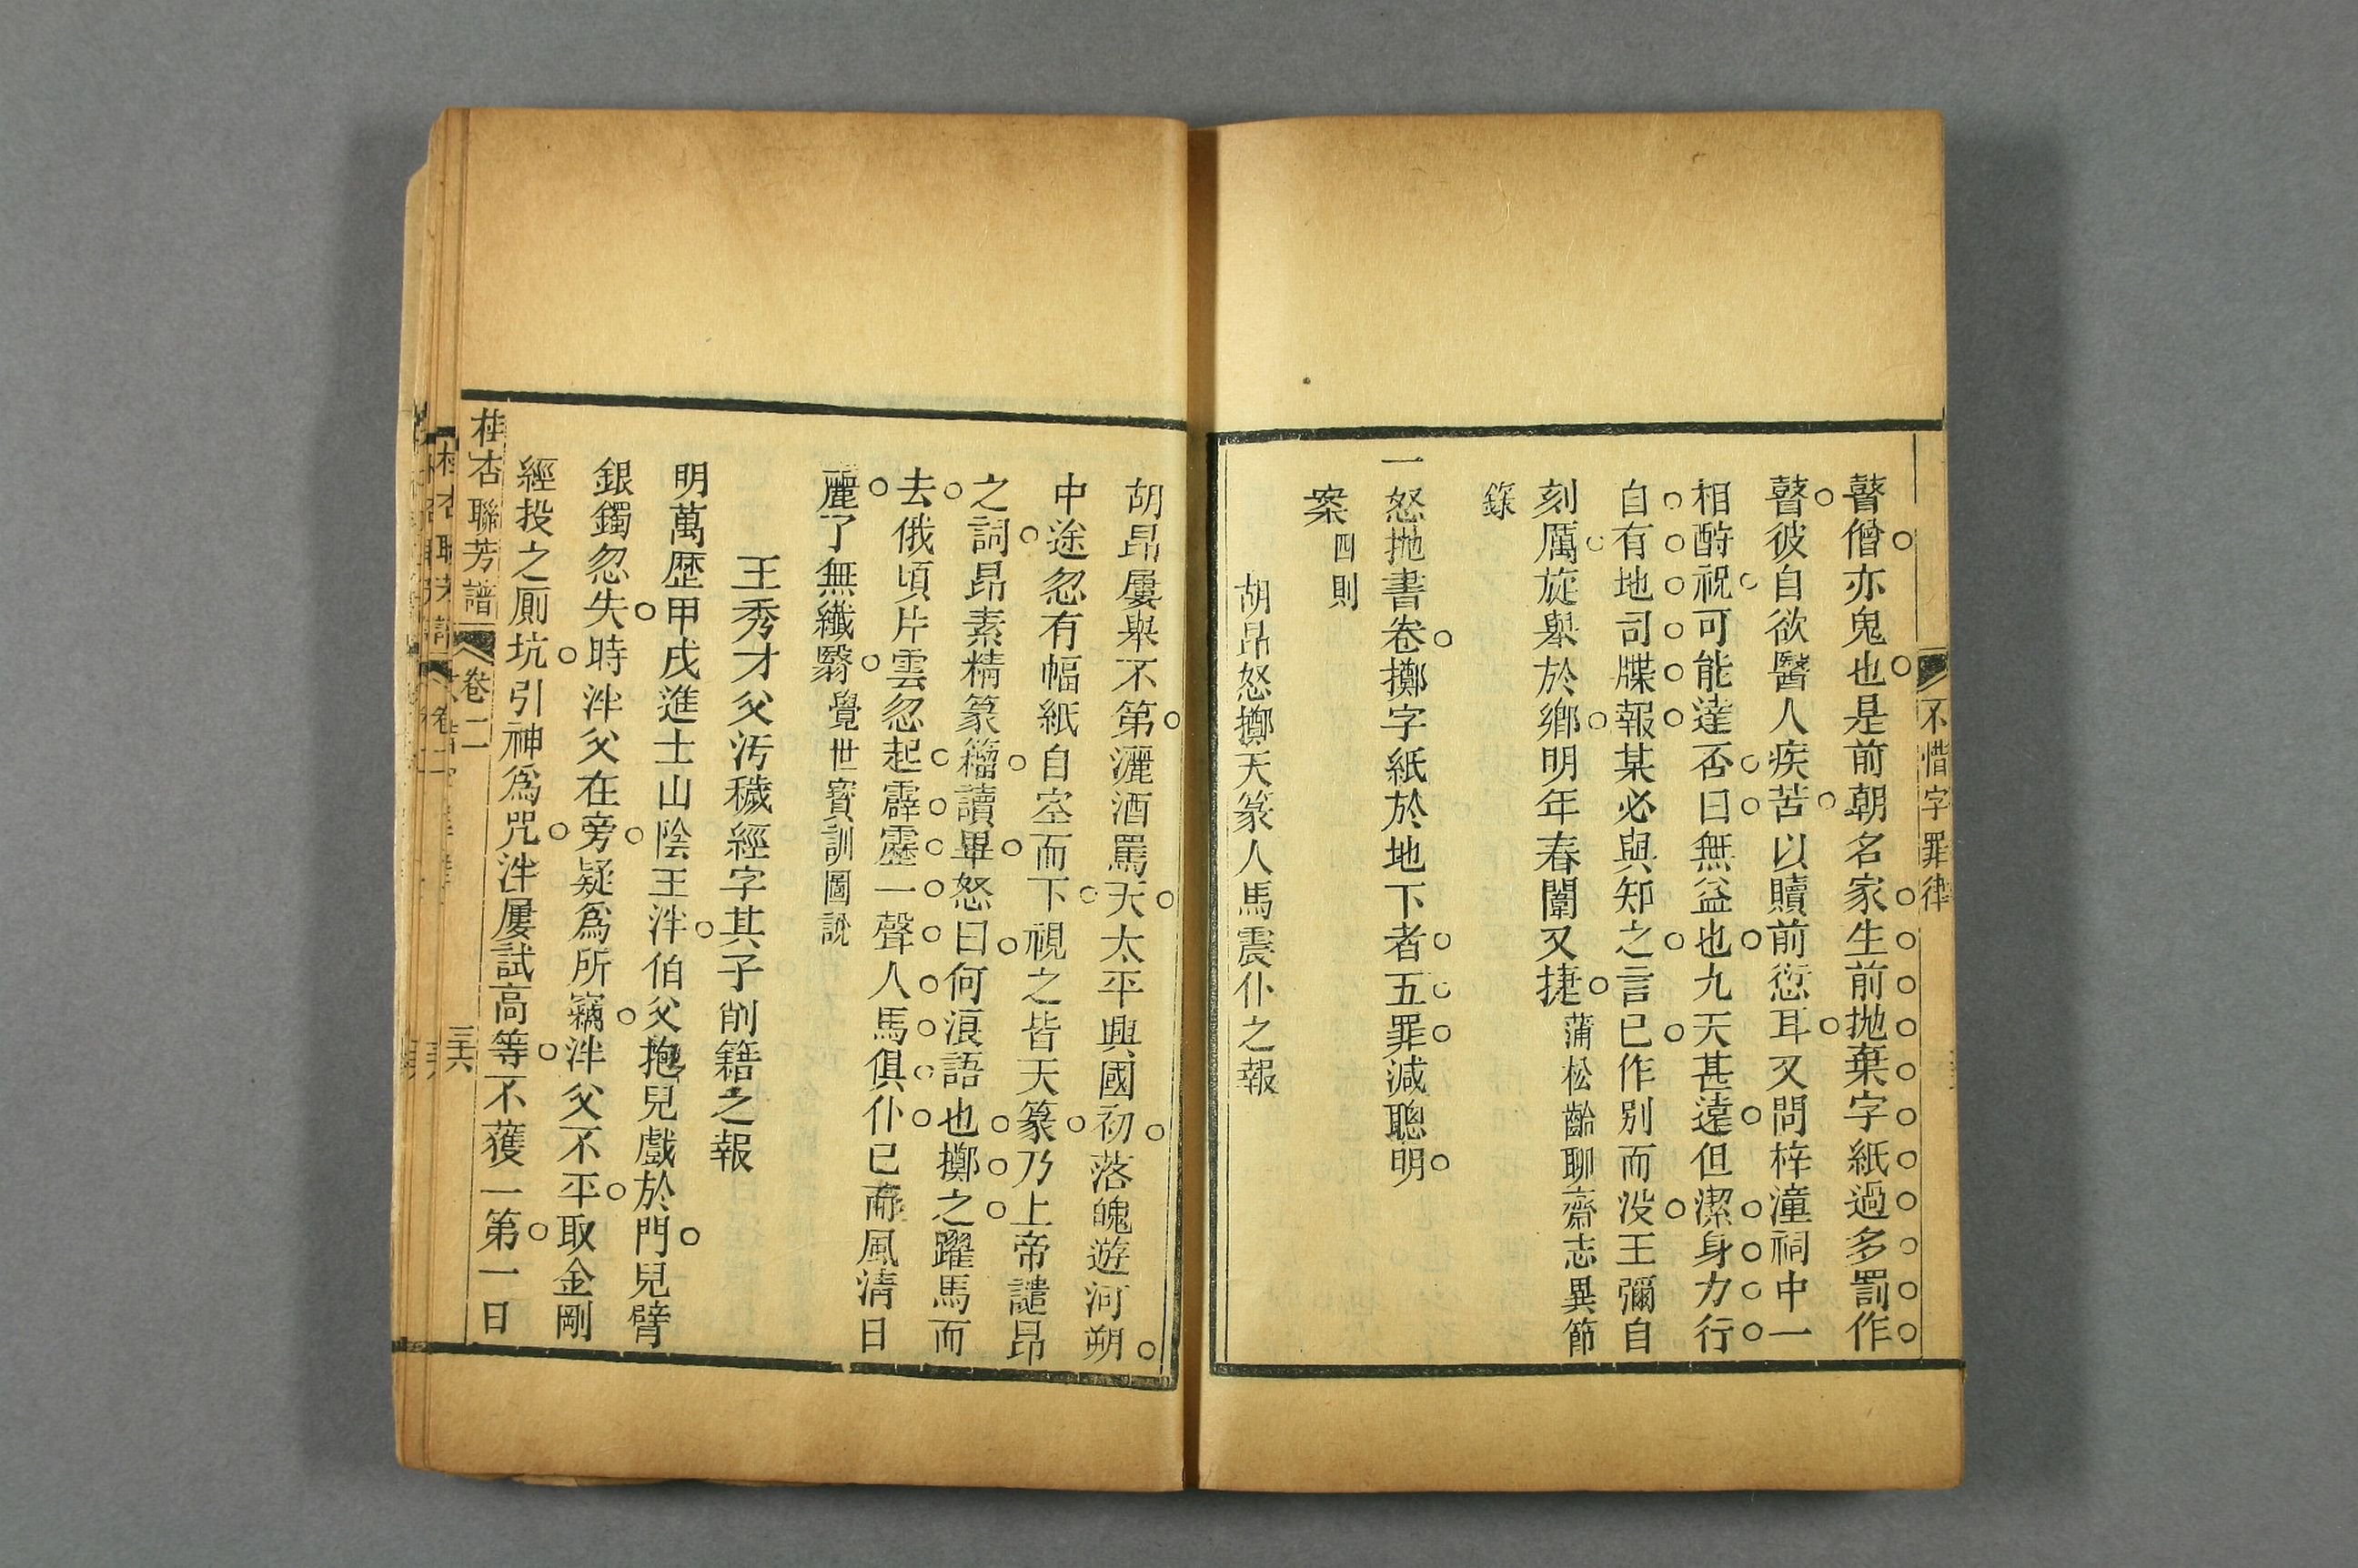 不惜字罪律
瞽僧亦鬼也是前朝名家生前抛棄字紙過多罰作
瞽彼自欲醫人疾苦以贖前愆耳又問梓潼祠中一
相酧祝可能達否曰無益也九天甚遠但潔身力行
自有地司牒報某必與知之言已作別而没王彌自
刻厲旋舉於鄉明年春闈又捷蒲松齡聊齋志異節
錄
一怒抛書卷擲字紙於地下者五罪減聰明
案四則
胡昂怒擲天篆人馬震仆之報
胡昂屢舉不第灑酒罵天太平興國初落魄遊河朔
中途忽有幅紙自空而下視之皆天篆乃上帝譴昂
之詞昂素精篆籀讀畢怒曰何浪語也擲之躍馬而
去俄頃片雲忽起霹靂一聲人馬俱仆已而風清日
麗了無纖翳覺世寶訓圖說
王秀才父汚穢經字其子削籍之報
明萬歷甲戌進士山陰王泮伯父抱兒戲於門兒臂
銀鐲忽失時泮父在旁疑爲所竊泮父不平取金剛
經投之厠坑引神爲咒泮屢試高等不獲一第一日
桂杏聯芳譜
卷二
三六